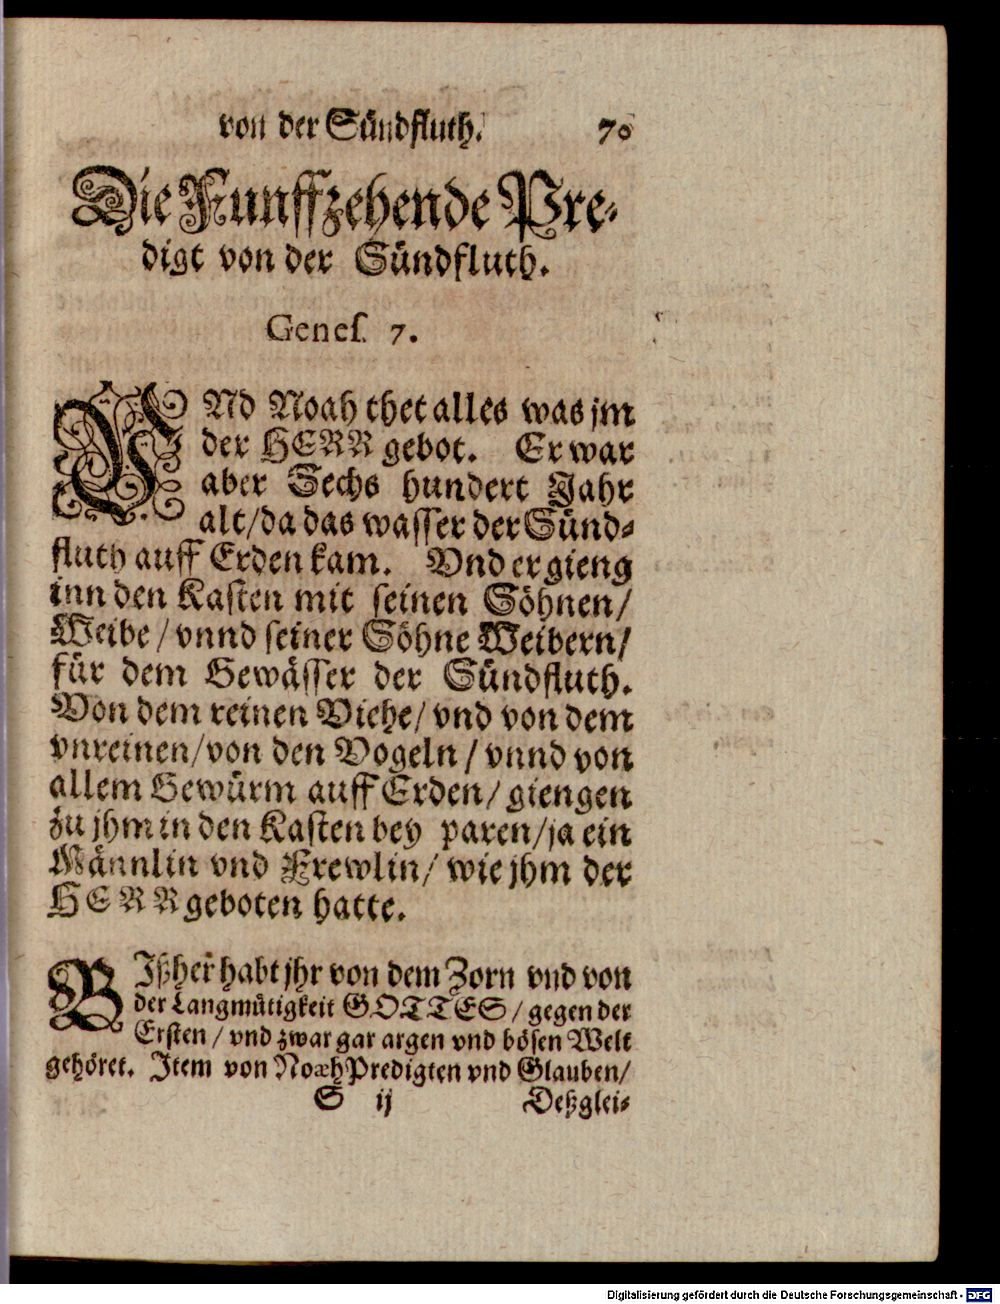 von der Sündfluth. 70
Die Funffzehende Pre-
digt von der Sündfluth.
Genes. 7.
VNd Noah thet alles was jm
der HERR gebot. Er war
aber Sechs hundert Jahr
alt/da das wasser der Sünd-
fluth auff Erden kam. Vnd er gieng
inn den Kasten mit seinen Söhnen/
Weibe/vnnd seiner Söhne Weibern/
für dem Gewässer der Sündfluth.
Von dem reinen Viehe/vnd von dem
vnreinen/von den Vogeln/vnnd von
allem Gewürm auff Erden/giengen
zu jhm in den Kasten bey paren/ja ein
Männlin vnd Frewlin/wie jhm der
HERR geboten hatte.
BIßher habt jhr von dem Zorn vnd von
der Langmütigkeit GOTTES/gegen der
Ersten/vnd zwar gar argen vnd bösen Welt
gehöret. Item von Noæh Predigten vnd Glauben/
S ij Deßglei-
Digitalisierung gefördert durch die Deutsche Forschungsgemeinschaft - DFG